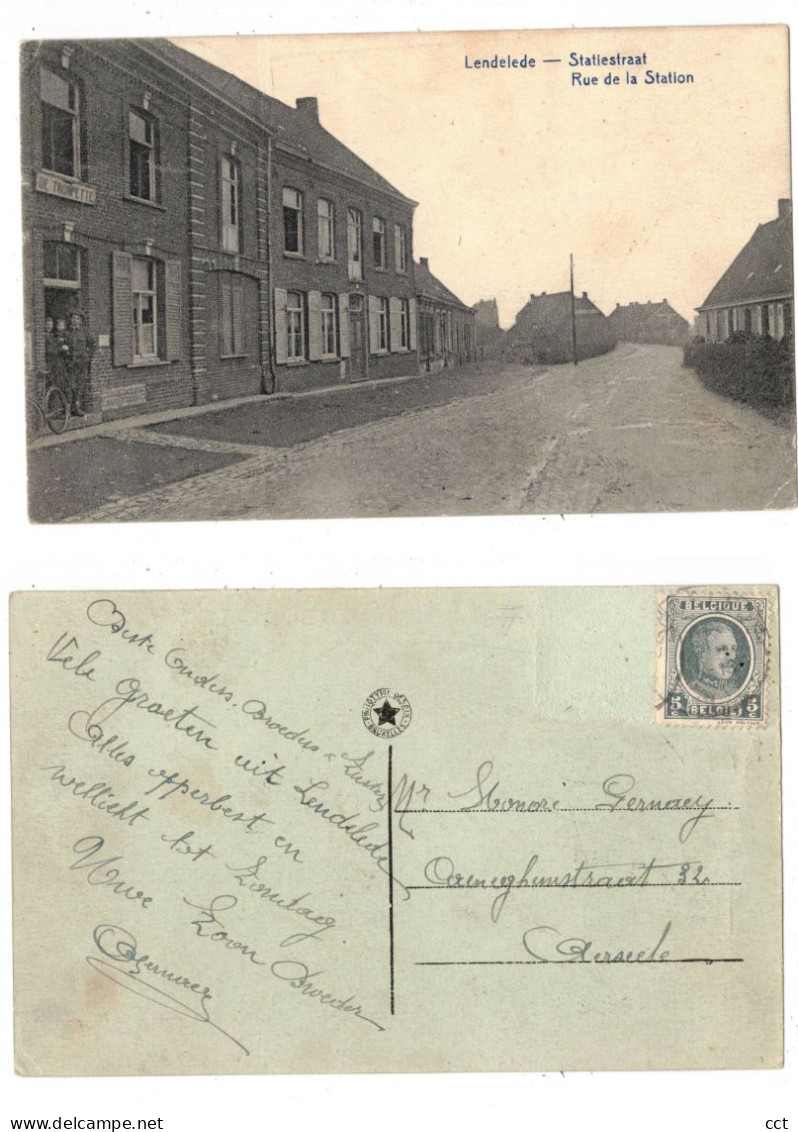 Lendelede — Statiestraat
Rue de la Station
DE TROMPETTE
BELGIQUE
5 c 5 c
BELGIË
Beste Ouders, Broeders & Zusters
Vele groeten uit Lendelede
Alles opperbest en
wellicht tot Zondag
Uwe Zoon Broeder
Mr Honoré Pernaey
32
Aerseele
www.delcampe.net
cct